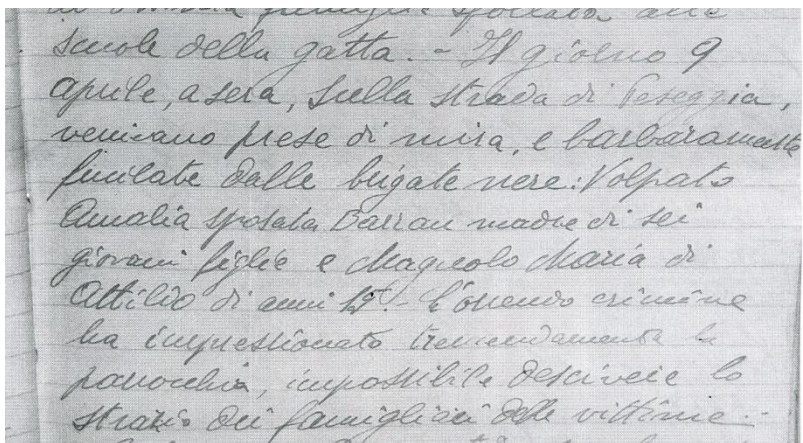 famiglia sfollata alle
scuole della gatta. - Il giorno 9
Aprile, a sera, sulla strada di Peseggia,
venivano prese di mira, e barbaramente
fucilate dalle brigate nere: Volpato
Amalia sposata Barzan madre di sei
giovani figlie e Magnolo Maria di
Attilio di anni L'orrendo crimine
ha impressionato tremendamente la
parrocchia, impossibile descrivere lo
strazio dei famigliari delle vittime.